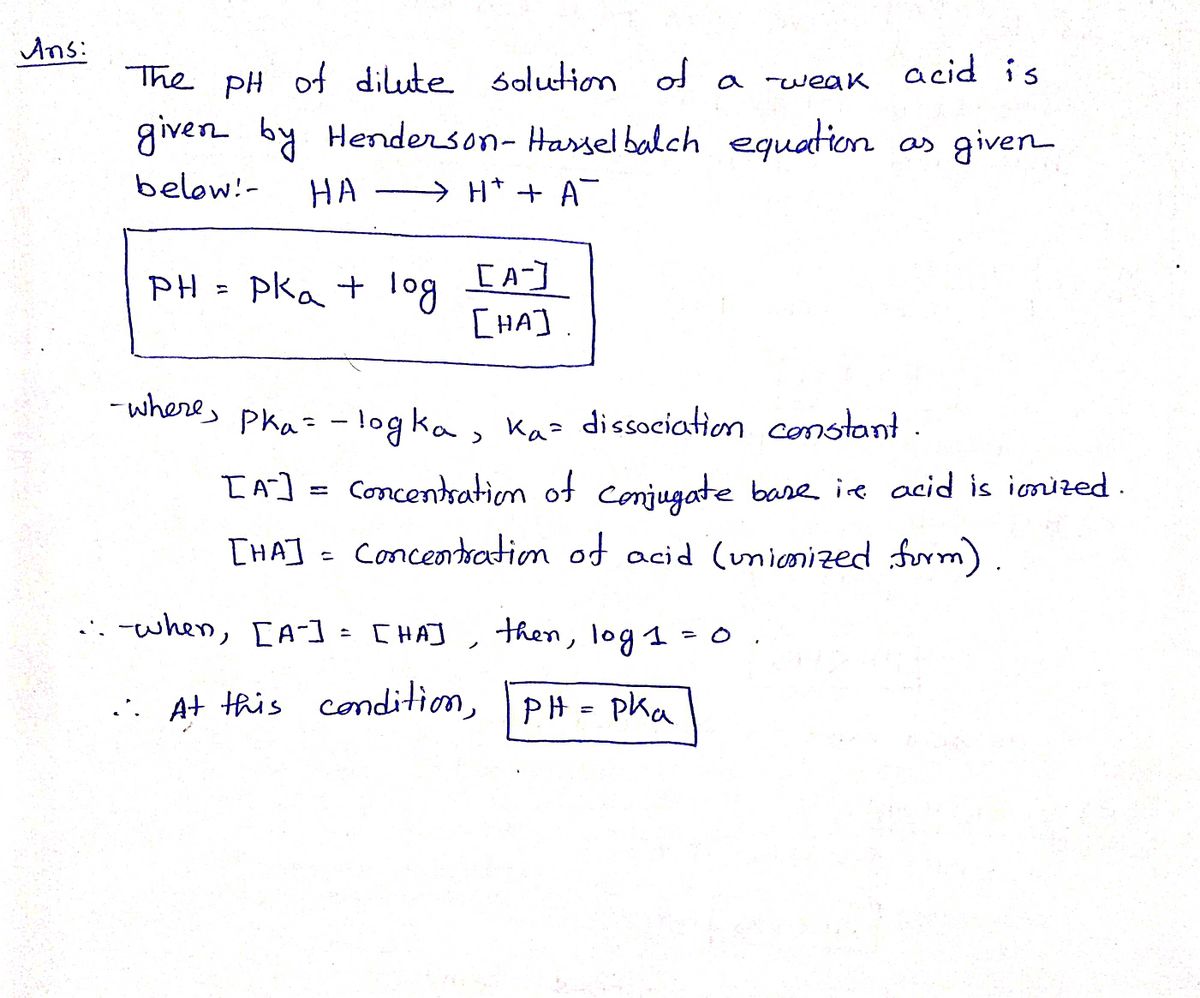 Ans:
The pH of dilute solution of a weak acid is
given by Henderson-Hasselbalch equation as given
below:- HA ⟶ H⁺ + A⁻
PH = PKa + log [A⁻]/[HA].
where, PKa = -log ka, Ka = dissociation constant.
[A⁻] = Concentration of conjugate base i.e acid is ionized.
[HA] = Concentration of acid (unionized form).
∴ when, [A⁻] = [HA], then, log 1 = 0.
∴ At this condition, PH = PKa